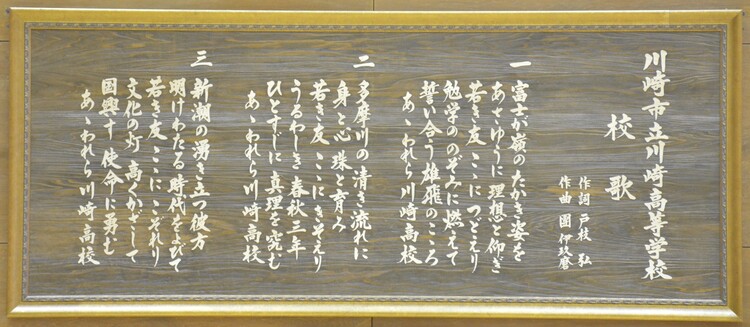 川崎市立川崎高等学校
校歌
作詞 戸枝 弘
作曲 團 伊玖磨
一
富士が嶺のたかき姿を
あさゆうに理想と仰ぎ
若き友ここにつどえり
勉学ののぞみに燃えて
誓い合う雄飛のこころ
あゝわれら川崎高校
二
多摩川の清き流れに
身と心珠と育み
若き友ここにきそえり
うるわしき春秋三年
ひとすじに真理を究む
あゝわれら川崎高校
三
新潮の湧き立つ彼方
明けわたる時代をよびて
若き友ここにこぞれり
文化の灯高くかざして
国興す使命に勇む
あゝわれら川崎高校